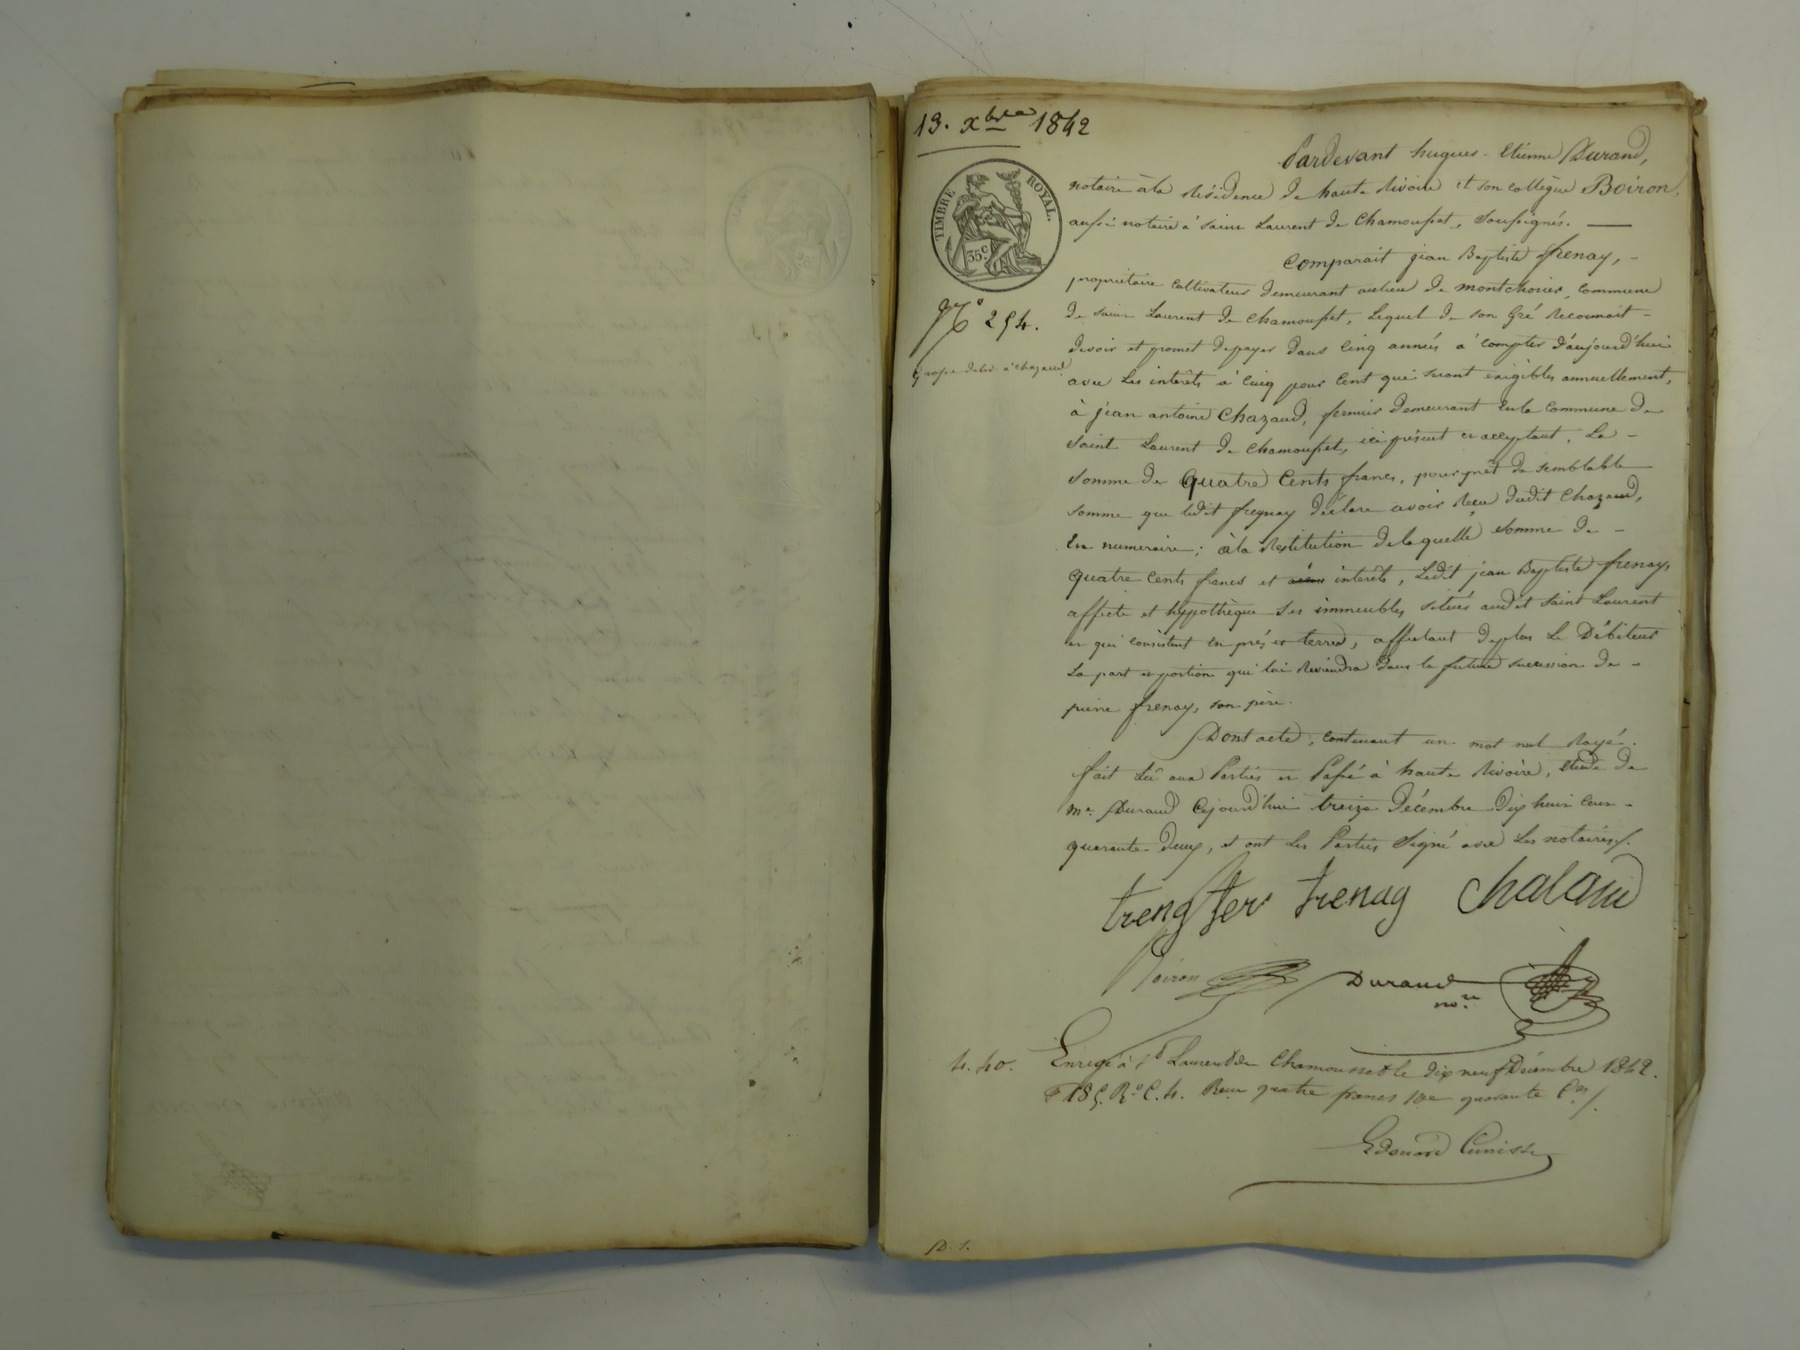 13. xbre 1842
Pardevant hugues-Etienne Durand,
notaire à la Résidence de haute Rivoire et son collègue Boiron,
aussi notaire à Saint Laurent de Chamousset, Soussignés. —
TIMBRE ROYAL.
35 c
Comparait jean Baptiste frenay, -
propriétaire cultivateur demeurant au lieu de montchorier, commune
de Saint Laurent de Chamousset, Lequel de son Gré Reconnait -
N° 254.
devoir et promet de payer dans Cinq années à compter d'aujourd'hui
grosse délée à Chazaud
avec Les intérêts à Cinq pour Cent qui seront exigibles annuellement,
à jean antoine Chazaud, fermier demeurant en la Commune de
Saint Laurent de Chamousset, ici présent et acceptant, La -
Somme de quatre Cents francs, pour prêt de semblable
somme que ledit fregnay déclare avoir Reçu dudit Chazaud,
En numeraire; à la Restitution de laquelle somme de -
quatre Cents francs et interêts, Ledit jean Baptiste frenay,
affecte et hypothèque ses immeubles situés audit Saint Laurent
et qui consistent en prés et terres, affectant de plus Le Débiteur
La part et portion qui lui Reviendra dans la future succession de -
pierre frenay, son père.
Dont acte, contenant un mot nul Rayé.
fait Lû aux Parties et Passé à haute Rivoire, Etude de
Me. Durand Cejourd'hui treize Décembre Dix huit Cent -
quarante-Deux, et ont Les Parties Signé avec Les notaires./.
frenay Chalaud
Boiron Durand
nore
4.40. Enregé à St Laurent de Chamousset le dix neuf Décembre 1842.
F° 185. Ro. C. 4. Reçu quatre francs 10e quarante Cmes/.
Edouard Cunisse
D. 1.